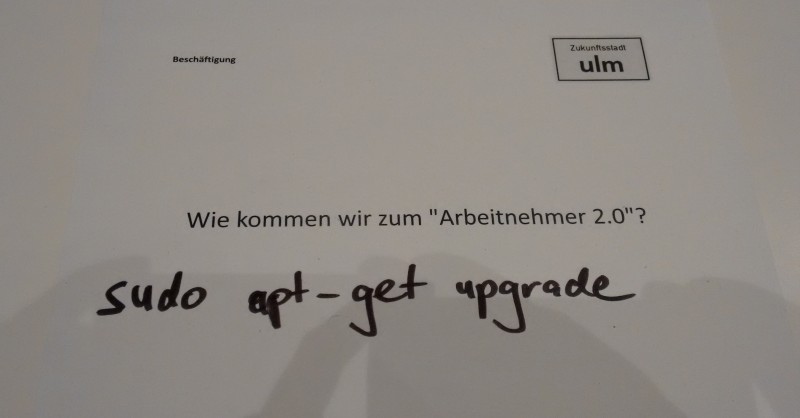 Beschäftigung
Zukunftsstadt
ulm
Wie kommen wir zum "Arbeitnehmer 2.0"?
sudo apt-get upgrade